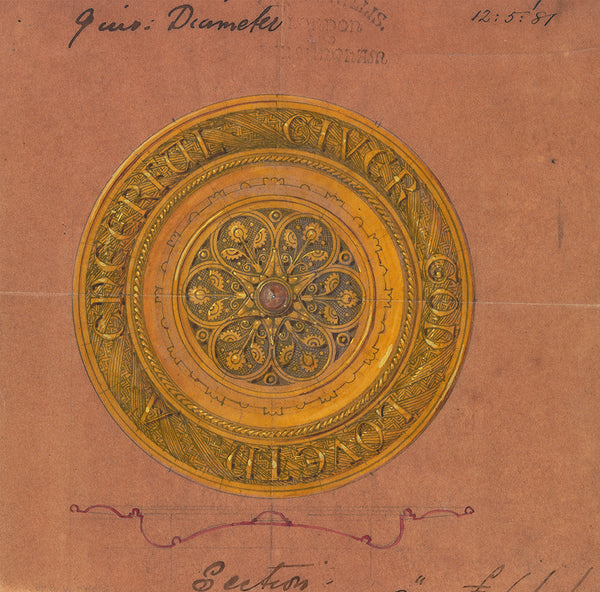 9 ins: Diameter
12:5:81
London
GOD LOVETH A CHEERFUL GIVER
Section: